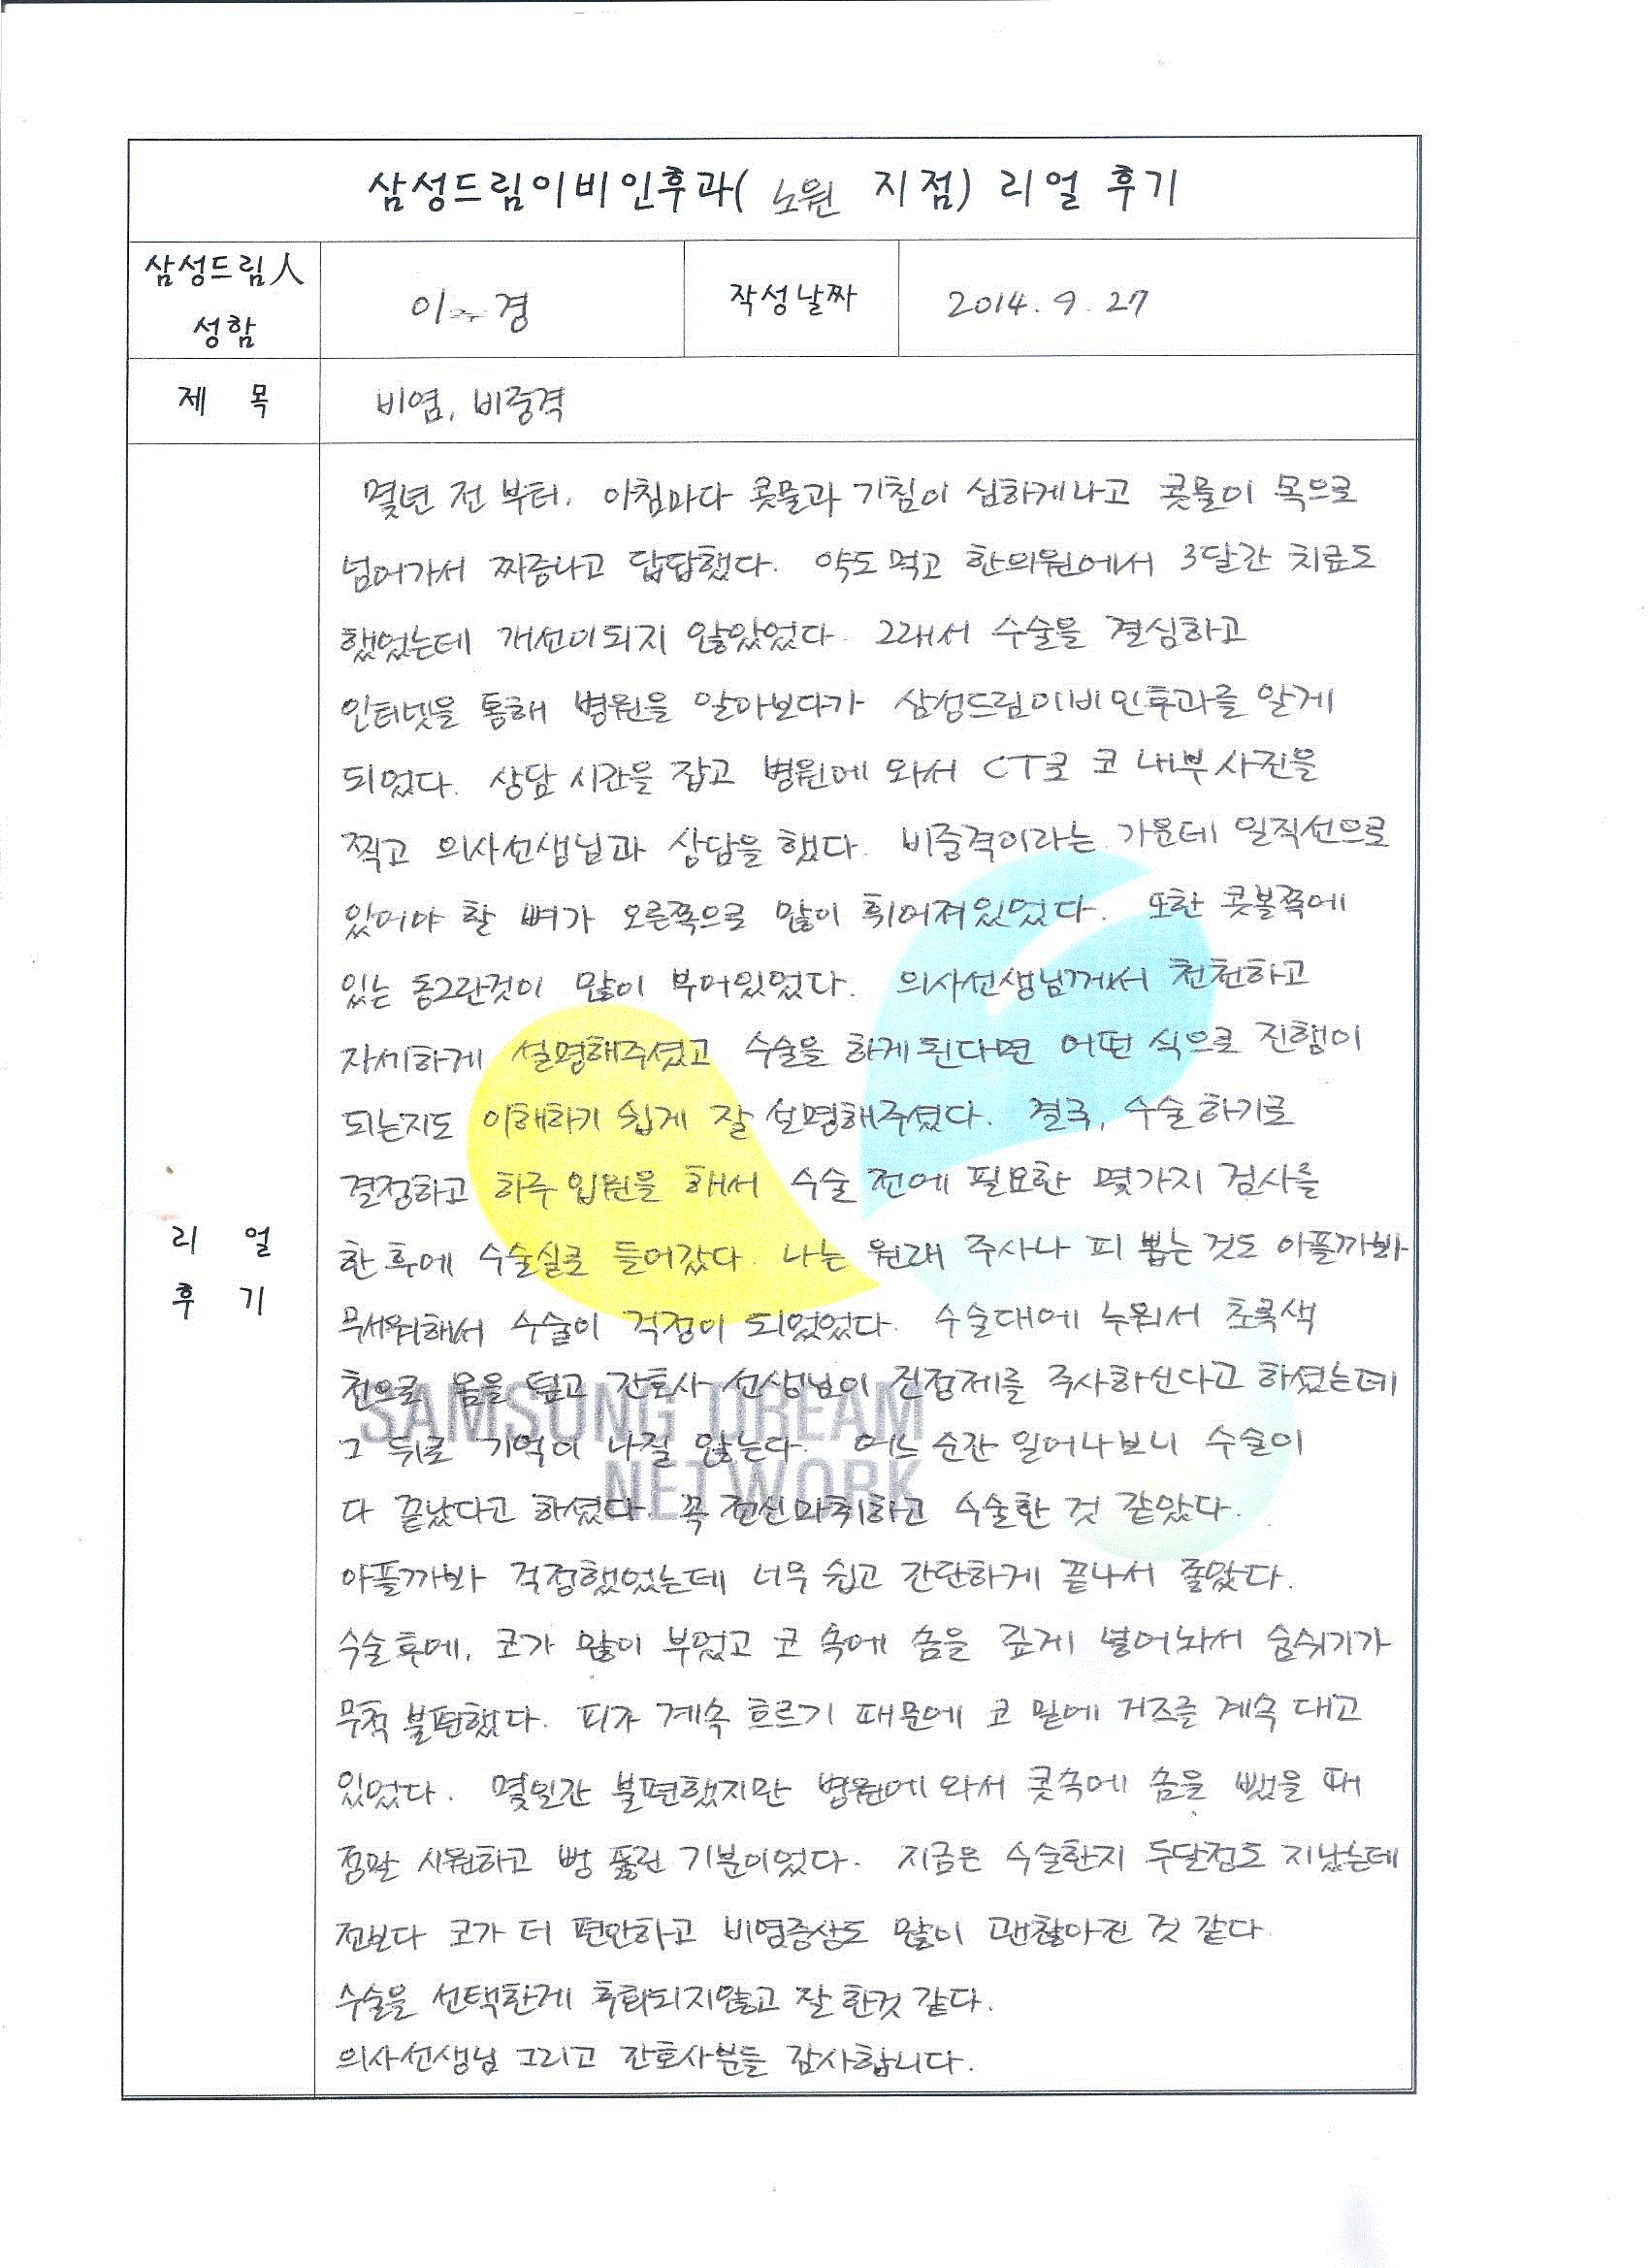 삼성드림이비인후과( 노원 지점) 리얼 후기
삼성드림人
성함
이 경
작성날짜
2014. 9. 27
제 목
비염, 비중격
몇년 전 부터, 아침마다 콧물과 기침이 심하게나고 콧물이 목으로
넘어가서 짜증나고 답답했다. 약도 먹고 한의원에서 3달간 치료도
했었는데 개선이되지 않았었다. 그래서 수술을 결심하고
인터넷을 통해 병원을 알아보다가 삼성드림이비인후과를 알게
되었다. 상담 시간을 잡고 병원에 와서 CT로 코 내부 사진을
찍고 의사선생님과 상담을 했다. 비중격이라는 가운데 일직선으로
있어야 할 뼈가 오른쪽으로 많이 휘어져있었다. 또한 콧볼쪽에
있는 동그란것이 많이 부어있었다. 의사선생님께서 천천하고
자세하게 설명해주셨고 수술을 하게된다면 어떤 식으로 진행이
되는지도 이해하기 쉽게 잘 설명해주셨다. 결국, 수술하기로
결정하고 하루 입원을 해서 수술 전에 필요한 몇가지 검사를
한 후에 수술실로 들어갔다. 나는 원래 주사나 피 뽑는 것도 아플까봐
무서워해서 수술이 걱정이 되었었다. 수술대에 누워서 초록색
천으로 몸을 덮고 간호사 선생님이 진정제를 주사하신다고 하셨는데
그 뒤로 기억이 나질 않는다. 어느 순간 일어나보니 수술이
다 끝났다고 하셨다. 꼭 전신마취하고 수술한 것 같았다.
아플까봐 걱정했었는데 너무 쉽고 간단하게 끝나서 좋았다.
수술후에, 코가 많이 부었고 코 속에 솜을 깊게 넣어놔서 숨쉬기가
무척 불편했다. 피가 계속 흐르기 때문에 코 밑에 거즈를 계속 대고
있었다. 몇일간 불편했지만 병원에 와서 콧속에 솜을 뺐을 때
정말 시원하고 뻥 뚫린 기분이었다. 지금은 수술한지 두달정도 지났는데
전보다 코가 더 편안하고 비염증상도 많이 괜찮아진 것 같다.
수술을 선택한게 후회되지않고 잘 한것 같다.
의사선생님 그리고 간호사분들 감사합니다.
리 얼
후 기
SAMSUNG DREAM
NETWORK